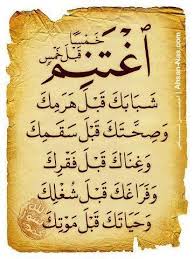 ٱغْتَنِمْ
خَمْسًا
قَبْلَ خَمْسٍ
شَبَابَكَ قَبْلَ هَرَمِكَ
وَصِحَّتَكَ قَبْلَ سَقَمِكَ
وَغِنَاكَ قَبْلَ فَقْرِكَ
وَفَرَاغَكَ قَبْلَ شُغْلِكَ
وَحَيَاتَكَ قَبْلَ مَوْتِكَ